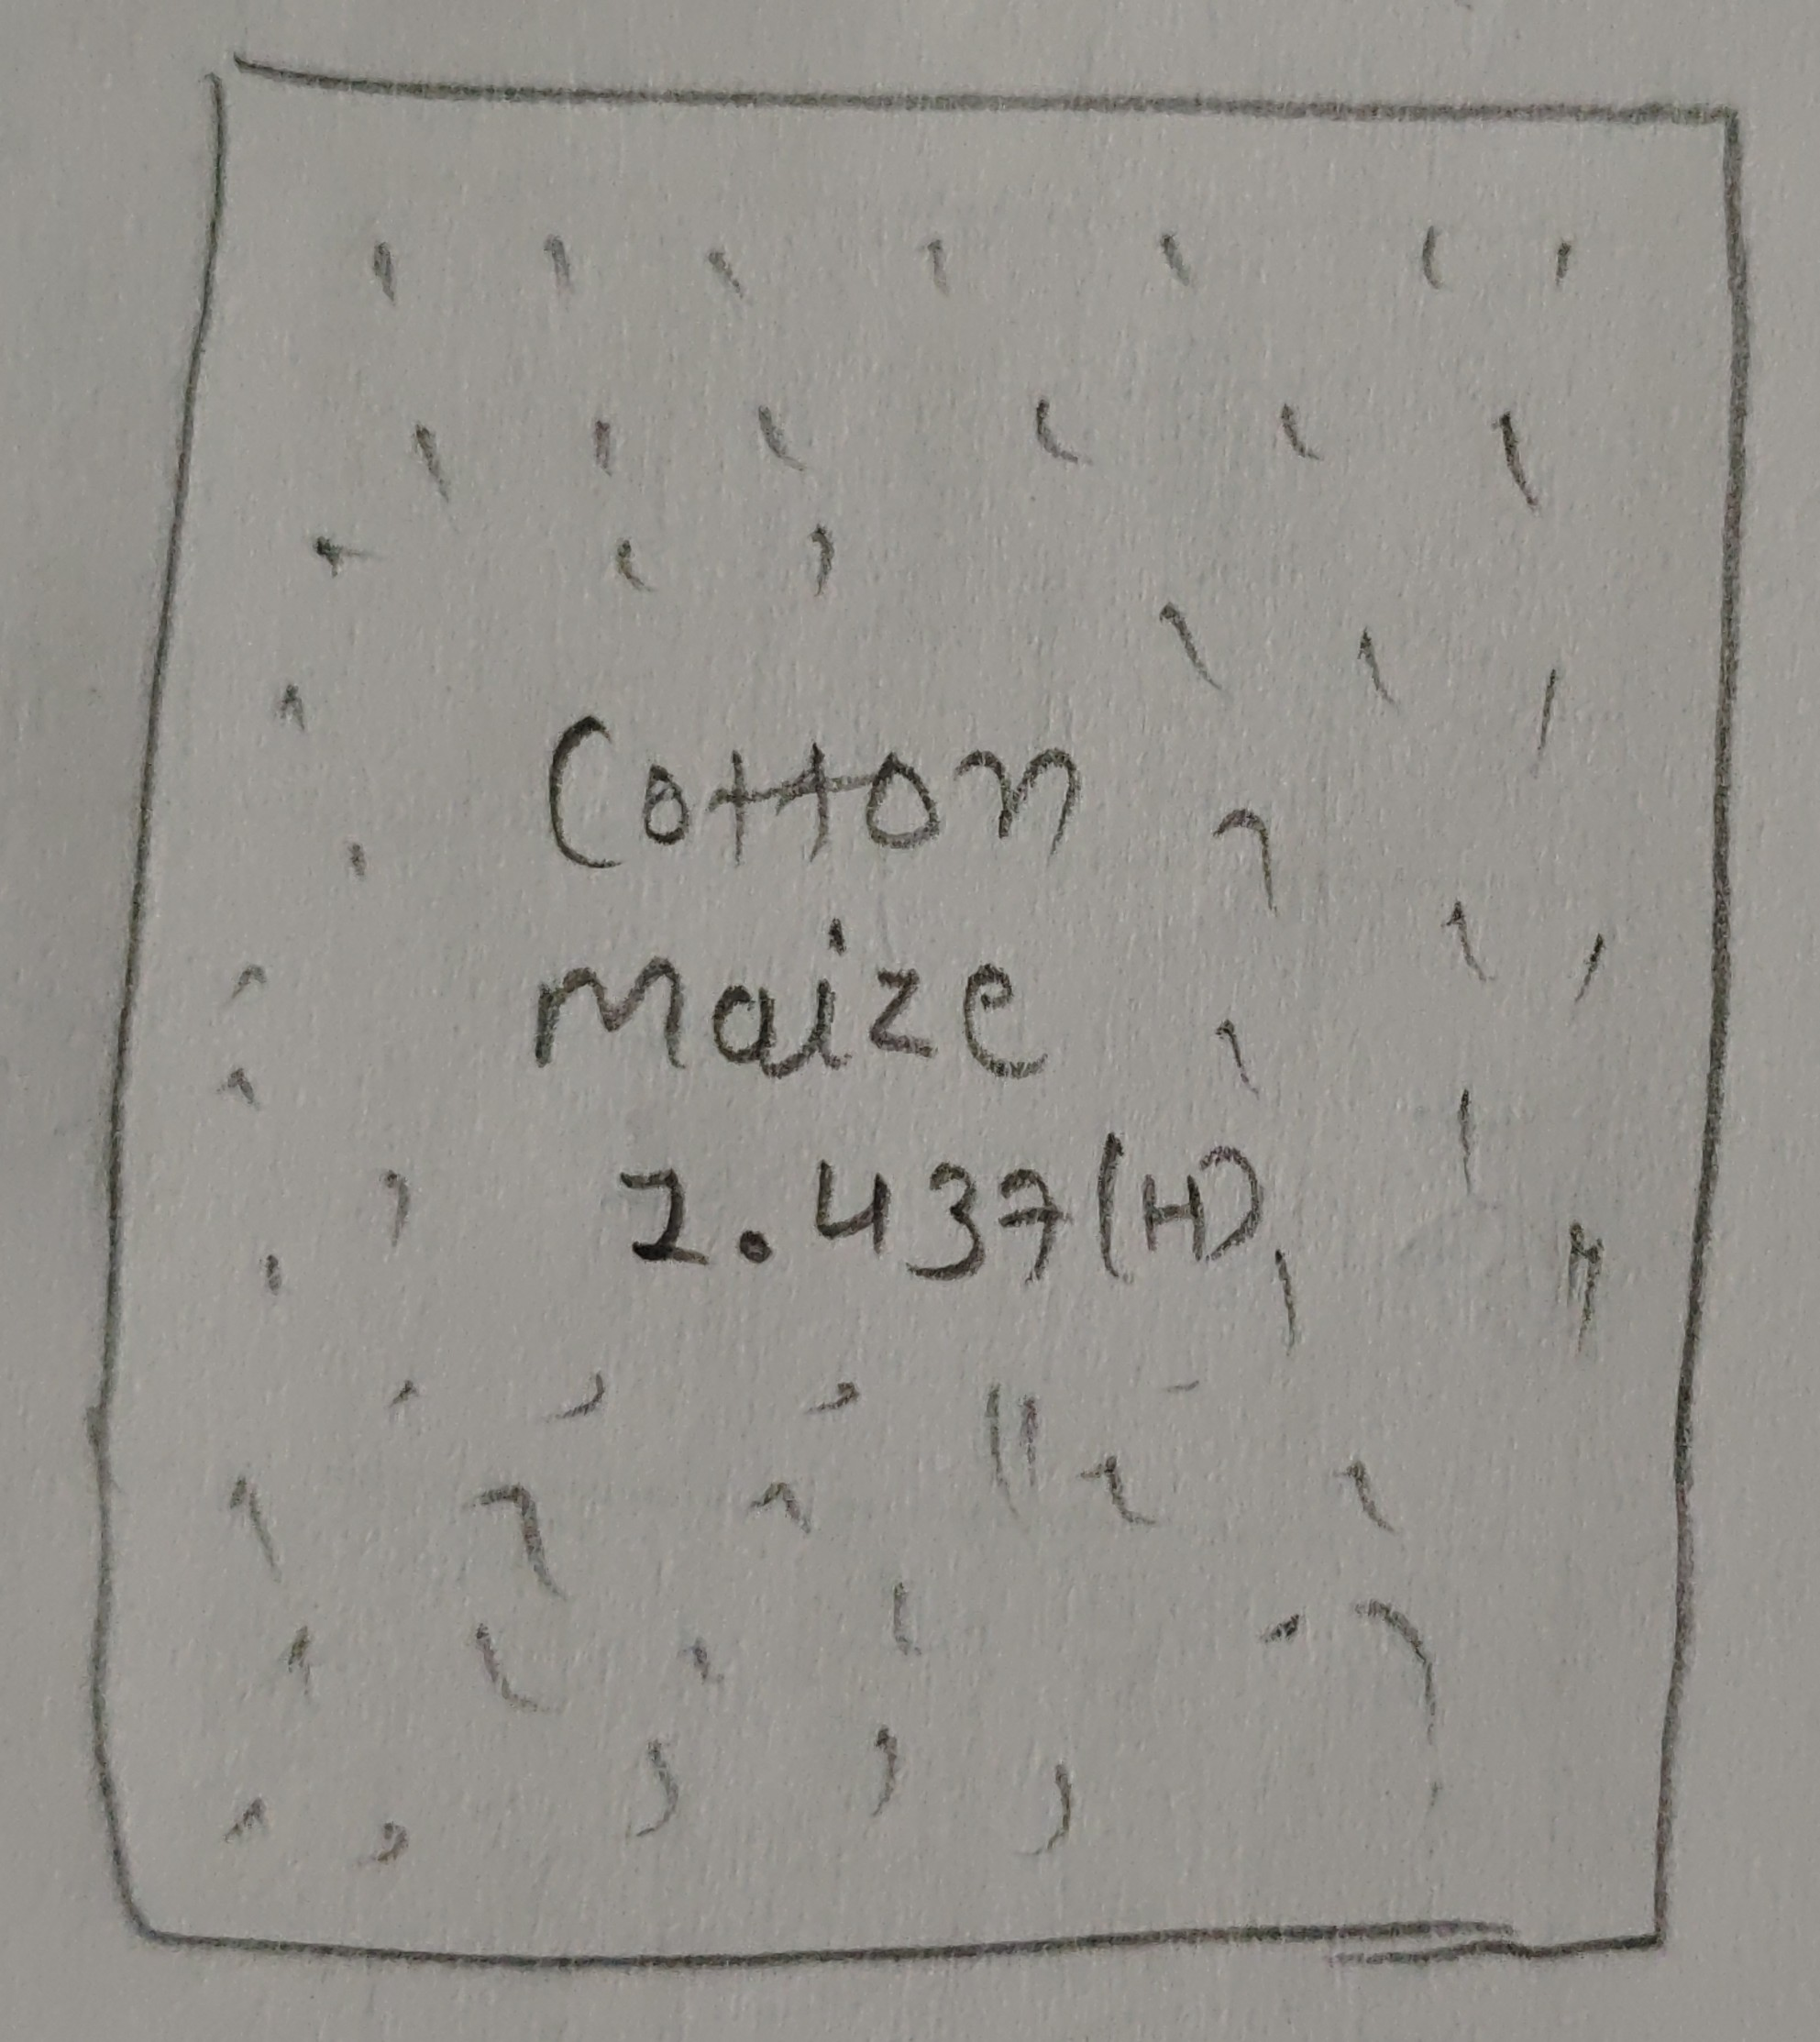 Cotton
Maize
2.437(H)